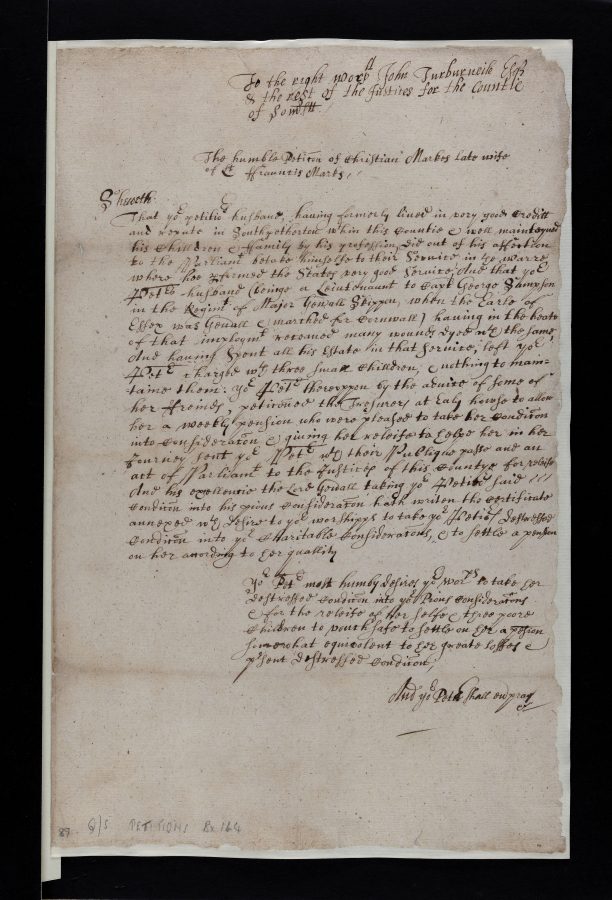 To the right worpll John Turburveile Esqr
& the rest of the Justices for the Countie
of Somsett
The humble Peticon of Christian Markes late wife
of Lt ffrauncis Marks
Sheweth
That yor petitionrs husband, having formerly lived in very good Creditt
and repute in Southpetherton wthin this Countie & well maintayned
his Children & ffamily by his profession did out of his affection
to the Parliamt betake himselfe to their Service in ye warre
where hee pformed the States very good Service, And that yor
Petrs husband (being a Leiutenaunt to Capt George Sampson
in the Regimt of Major Genall Skippon, when the Earle of
Essex was Genall & marched for Cornwall) having in the heate
of that imploymt receaued many wounds dyed wth the same,
And having Spent all his Estate in that Service, left yor
Petr charged wth three small Children, & nothing to main-
taine them: yor Petr therevppon by the advice of some of
her freinds, peticoned the Tresurers at Ealy house to allow
her a weekly pension who were pleased to take her Condicon
into Consideracon & giving her releife to helpe her in her
Journey sent yor Petr wth their Publique passe and an
act of Parliamt to the Justices of this Countye for releife
And his excellencie the Lord Genall taking yor Petrs said
Condicon into his pious Consideracon hath written the Certificate
annexed wth desire to yor worshipps to take yor Petrs destressed
Condicon into yor Charitable Consideracons, & to settle a pension
on her according to her quallity
Yor Petr most humbly desires yor worps to take her
destressed Condicon into yor Pious Consideracons
& for the releife of her selfe & three poore
Children to vouchsafe to settle on her a pesion
somewhat equivolent to her greate losses &
psent destressed Condicon,
And yor Petr shall ev pray
&c
87 Q/S PETITIONS Bx 164